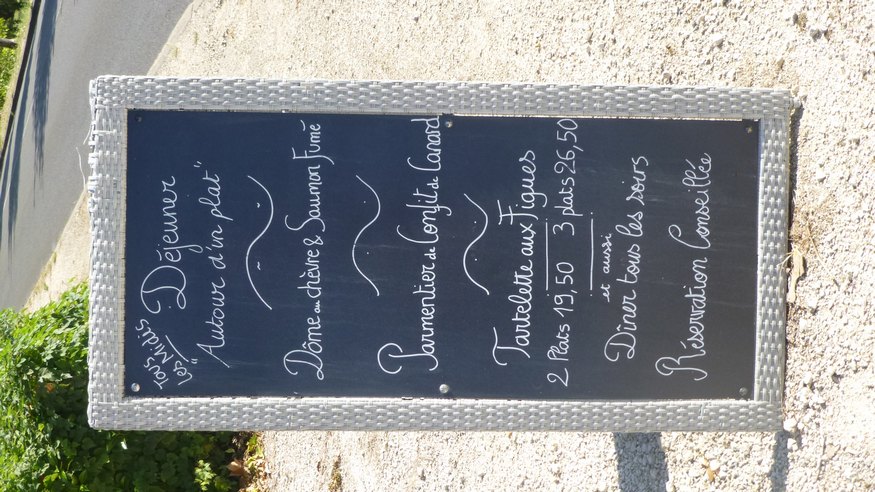 Tous
Les Midis
Déjeuner
"Autour d'un plat"
Dôme au chèvre & Saumon Fumé
Parmentier de Confit de Canard
Tartelette aux Figues
2 Plats 19,50 3 plats 26,50
et aussi
Diner tous les soirs
Réservation Conseillée